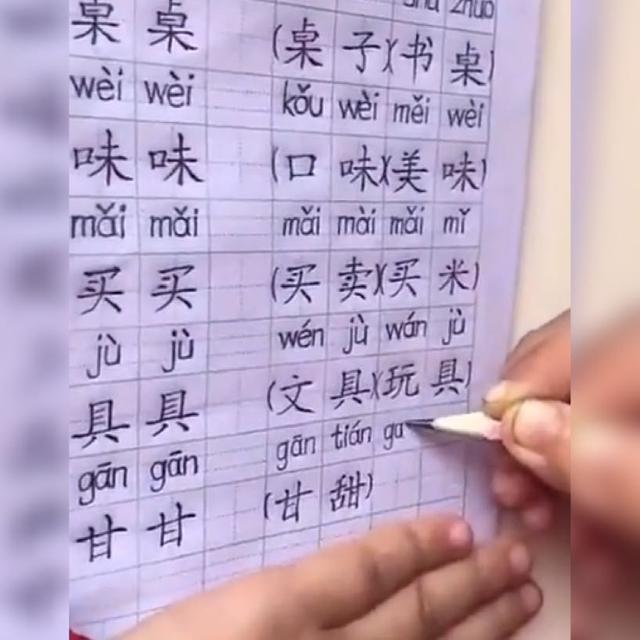 zhuō
桌 桌 (桌 子)(书 桌)
wèi wèi kǒu wèi měi wèi
味 味 (口 味)(美 味)
mǎi mǎi mǎi mài mǎi mǐ
买 买 (买 卖)(买 米)
jù jù wén jù wán jù
具 具 (文 具)(玩 具)
gān gān gān tián ga
甘 甘 (甘 甜)